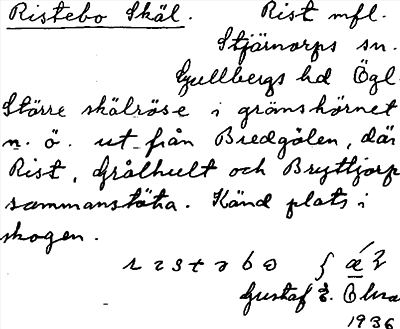 Ristebo Skäl. Rist mfl.
Stjärnorps sn.
Gullbergs hd Ögl.
Större skälröse i gränshörnet
n. ö. ut från Bredgölen, där
Rist, Grålhult och Bryttjorp
sammanstöta. Känd plats i
skogen.
Gustaf
1936